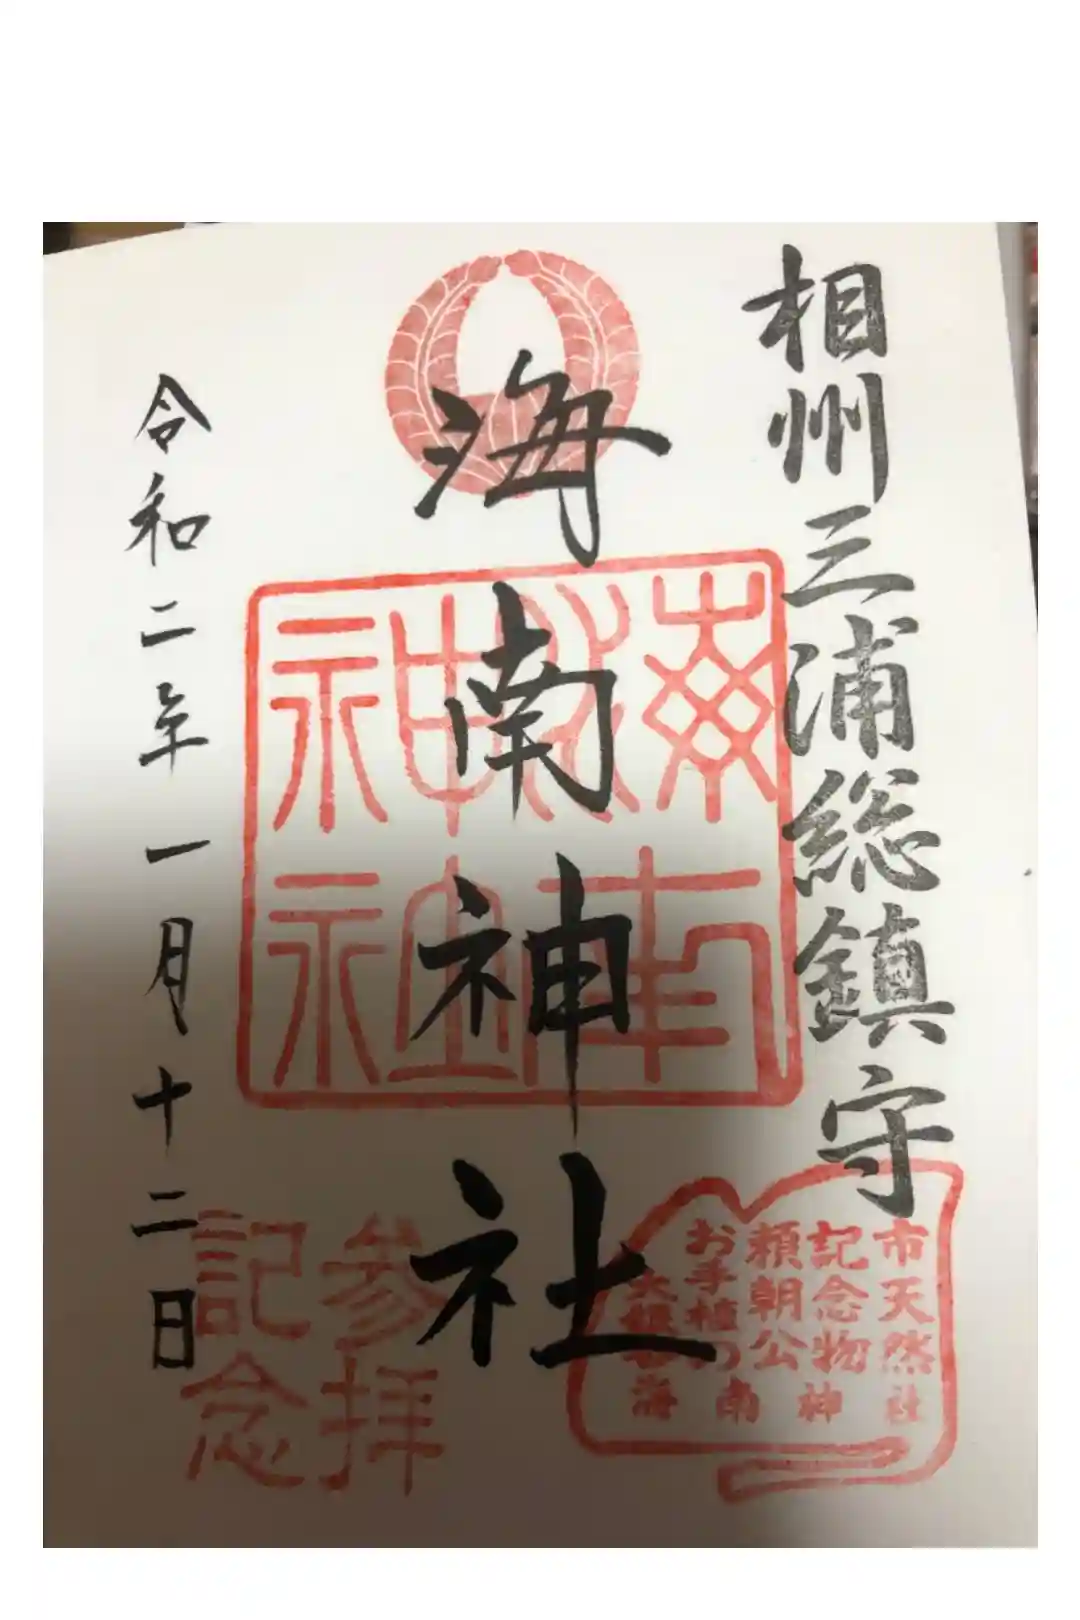 相州三浦総鎮守
海南神社
令和二年一月十二日
海南
神社
参拝
記念
市天然
記念物
頼朝公
お手植の
海南神社